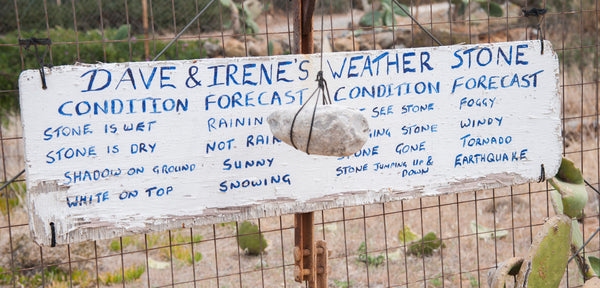 DAVE & IRENE'S WEATHER STONE
CONDITION FORECAST CONDITION FORECAST
STONE IS WET RAININ SEE STONE FOGGY
STONE IS DRY NOT RAIN ING STONE WINDY
SHADOW ON GROUND SUNNY STONE GONE TORNADO
WHITE ON TOP SNOWING STONE JUMPING UP & DOWN EARTHQUAKE